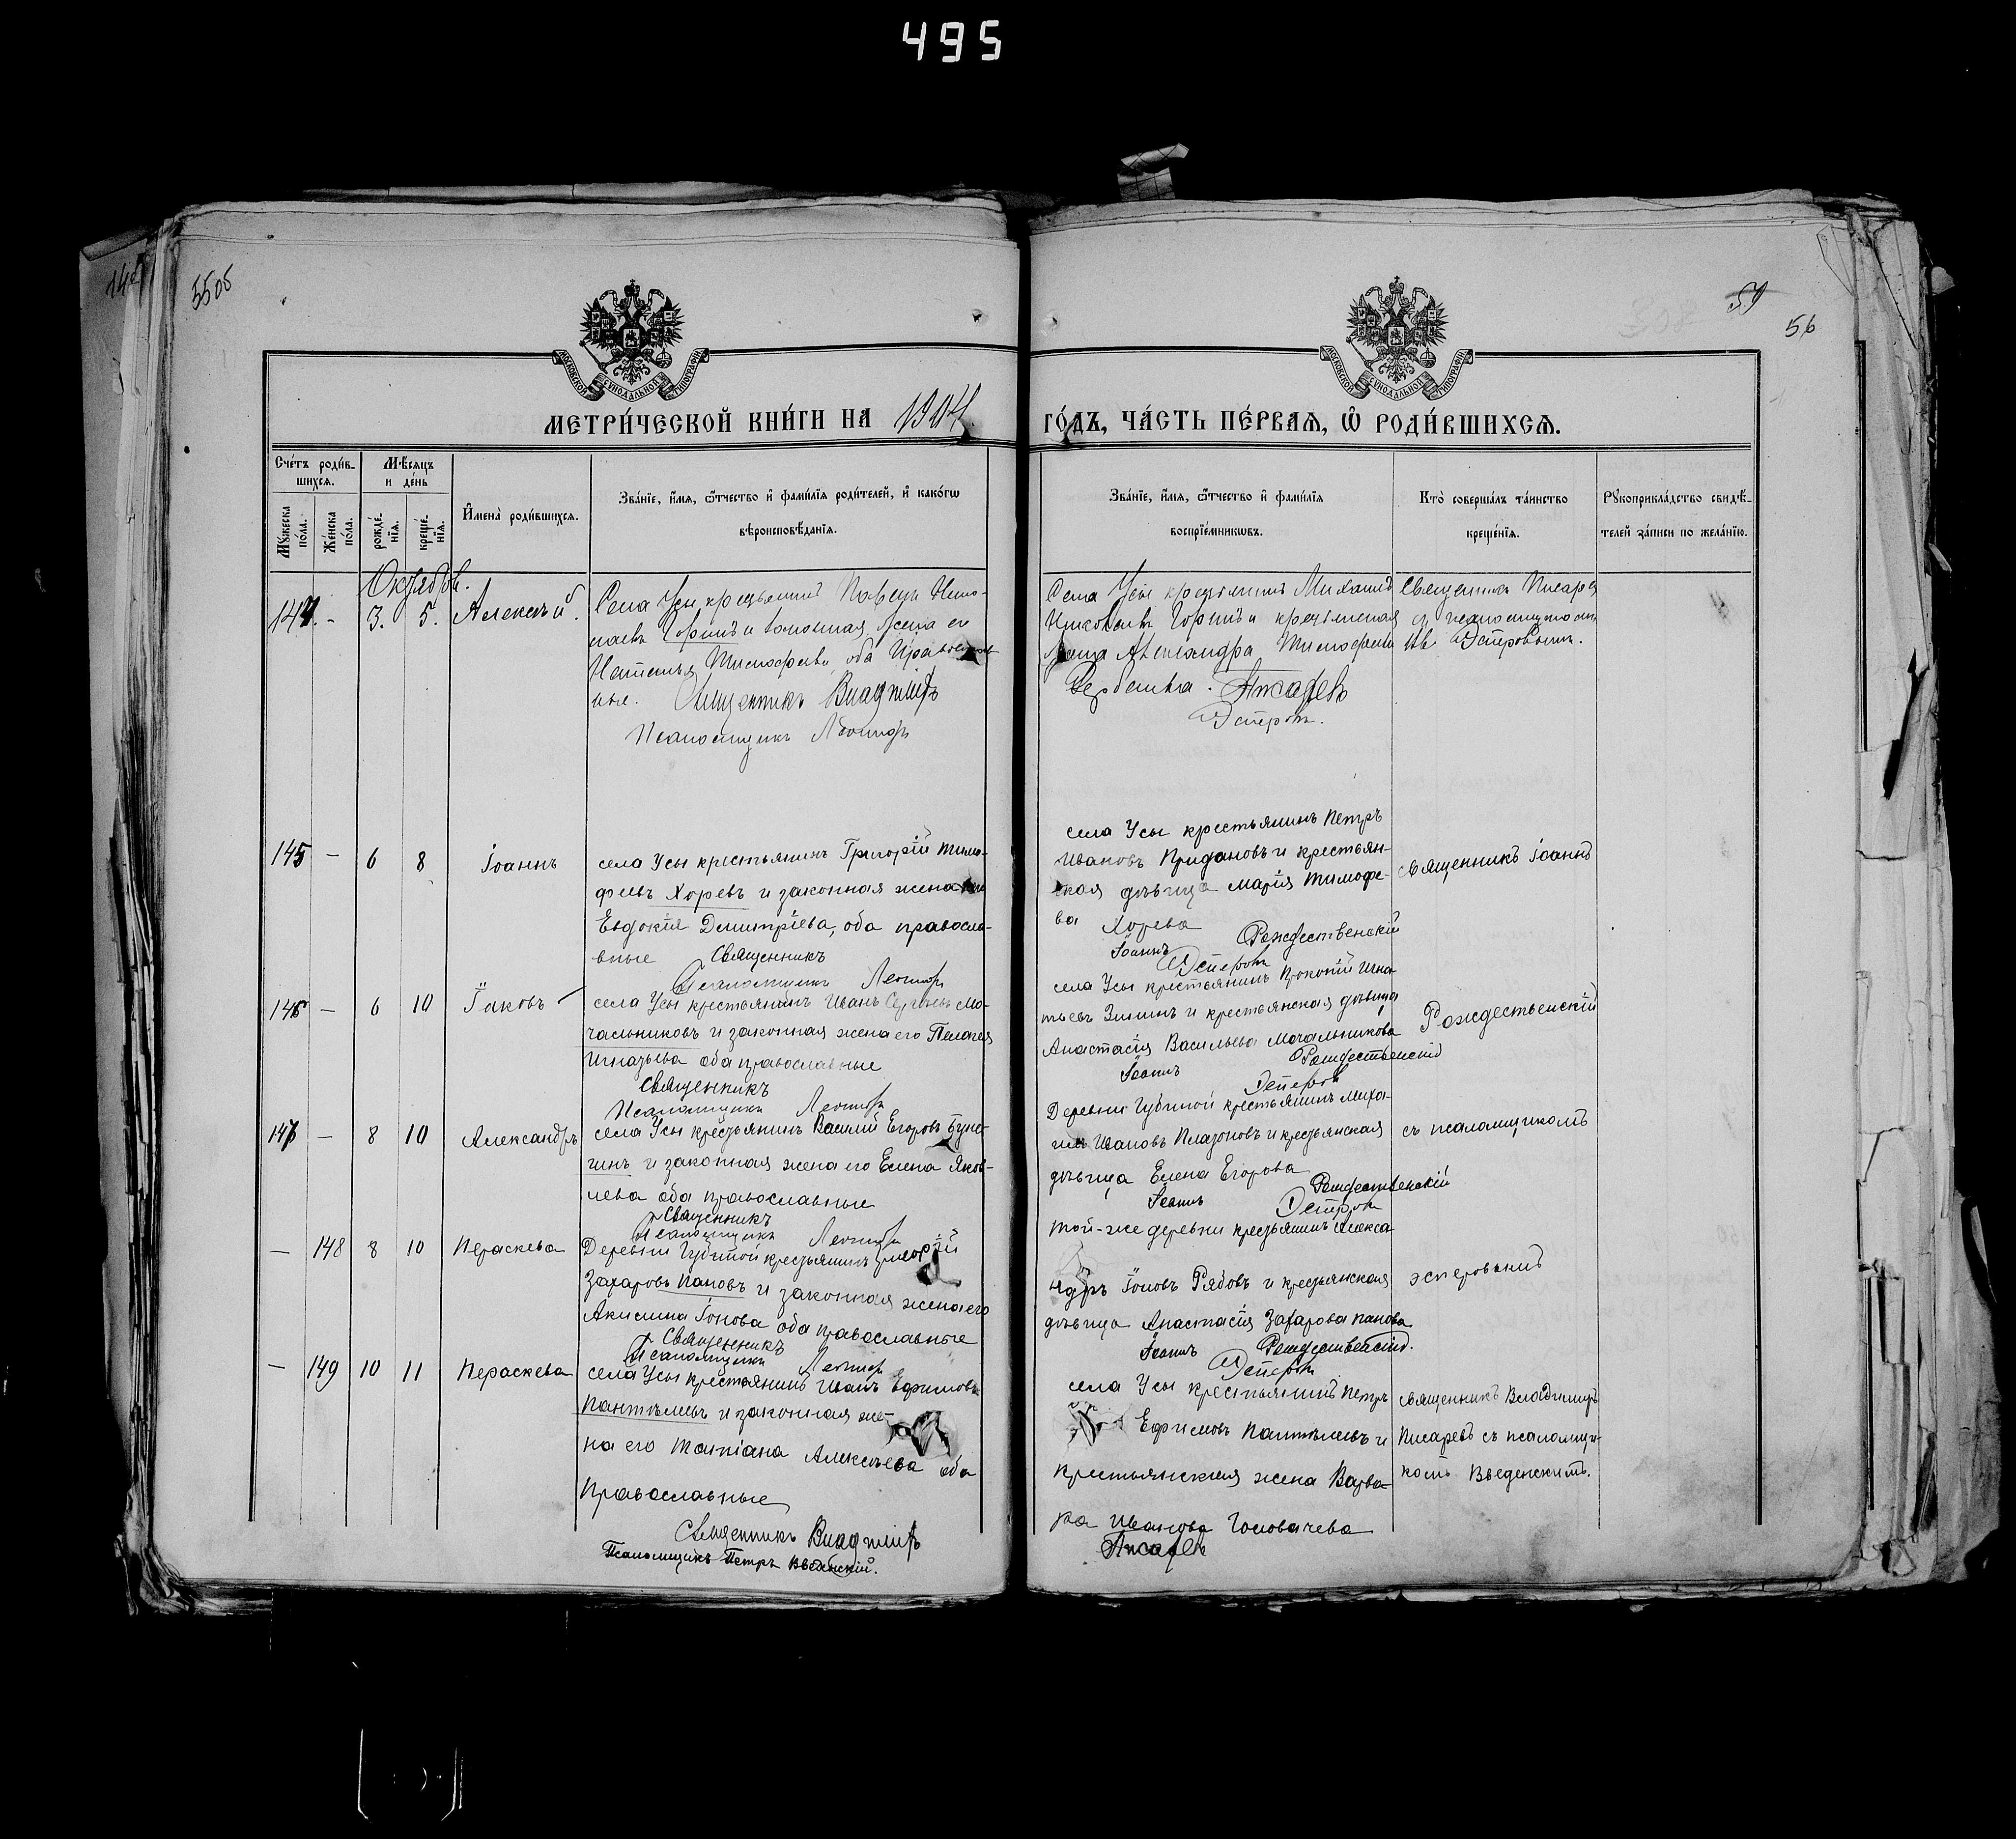 495
56
МЕТРИ́ЧЕСКОЙ КНИ́ГИ НА 1904
ГО́ДЪ, ЧА́СТЬ ПЕ́РВАЯ, Ѡ҆ РОДИ́ВШИХСѦ.
Сче́тъ роди́в-
шихсѧ.
Мѣ́сѧцъ
и де́нь
Мꙋ́жеска
по́ла.
Же́нска
по́ла.
рожде́-
нїѧ.
креще́-
нїѧ.
И҆мена̀ роди́вшихсѧ.
Зва́нїе, и҆́мѧ, ѻ҆́тчество и҆ фами́лїѧ роди́телей, и҆ како́гѡ
вѣроисповѣ́данїѧ.
Зва́нїе, и҆́мѧ, ѻ҆́тчество и҆ фами́лїѧ
воспрїе́мникѡвъ.
Кто̀ соверша́лъ та́инство
креще́нїѧ.
Рꙋкоприкла́дство свидѣ́-
телей за́писи по жела́нїю.
Октябрь.
3. 5. Алексѣй.
Села Усы крестьянинъ
Горинъ и законная жена его
Тимофеева, оба Православ-
ные. Священникъ Владимiръ
Псаломщикъ
Села Усы крестьянинъ Михаилъ
Николаевъ Горинъ и крестьянская
жена Александра Тимофеева
Писаревъ
Эсперовъ.
Священникъ Писаревъ
съ псаломщикомъ
Эсперовымъ.
145 — 6 8 Іоаннъ
села Усы крестьянинъ Григорій Тимо-
феевъ Хоревъ и законная жена его
Евдокія Димитріева, оба правосла-
вные Священникъ
Псаломщикъ
села Усы крестьянинъ Петръ
Ивановъ Придановъ и крестьян-
ская дѣвица Марія Тимофе-
ва Хорева
Іоаннъ Рождественскій
Эсперовъ
священникъ Іоаннъ
146 — 6 10 Іаковъ
села Усы крестьянинъ Иванъ Сергѣевъ Мо-
чальниковъ и законная жена его Пелагея
Игнатьева оба православные
Священникъ
Псаломщикъ
села Усы крестьянинъ Прокопій Игна-
тьевъ Зининъ и крестьянская дѣвица
Анастасія Васильева Мочальникова
Іоаннъ Рождественскій
Эсперовъ
Рождественскій
147 — 8 10 Александръ
села Усы крестьянинъ Василій Егоровъ
и законная жена его Елена Яков-
лева оба православные
Священникъ
Псаломщикъ
Деревни Губиной крестьянинъ Миха-
илъ Ивановъ Платоновъ и крестьянская
дѣвица Елена Егорова
Іоаннъ Рождественскій
Эсперовъ
съ псаломщикомъ
— 148 8 10 Параскева
Деревни Губиной крестьянинъ
Захаровъ Пановъ и законная жена его
Акилина Іонова оба православные
Священникъ
Псаломщикъ
той-же деревни крестьянинъ Алекса-
ндръ Іоновъ Рябовъ и крестьянская
дѣвица Анастасія Захарова Панова
Іоаннъ Рождественскій.
Эсперовъ
эсперовымъ
— 149 10 11 Параскева
села Усы крестьянинъ Иванъ Ефимовъ
Пантѣлеевъ и законная же-
на его Татіана Алексѣева оба
православные
Священникъ Владимiръ
Псаломщикъ Петръ Введенскій.
села Усы крестьянинъ Петръ
Ефимовъ Пантѣлеевъ и
крестьянская жена Варва-
ра Иванова Головачева
Писаревъ
священникъ Владимiръ
Писаревъ съ псаломщи-
комъ Введенскимъ.